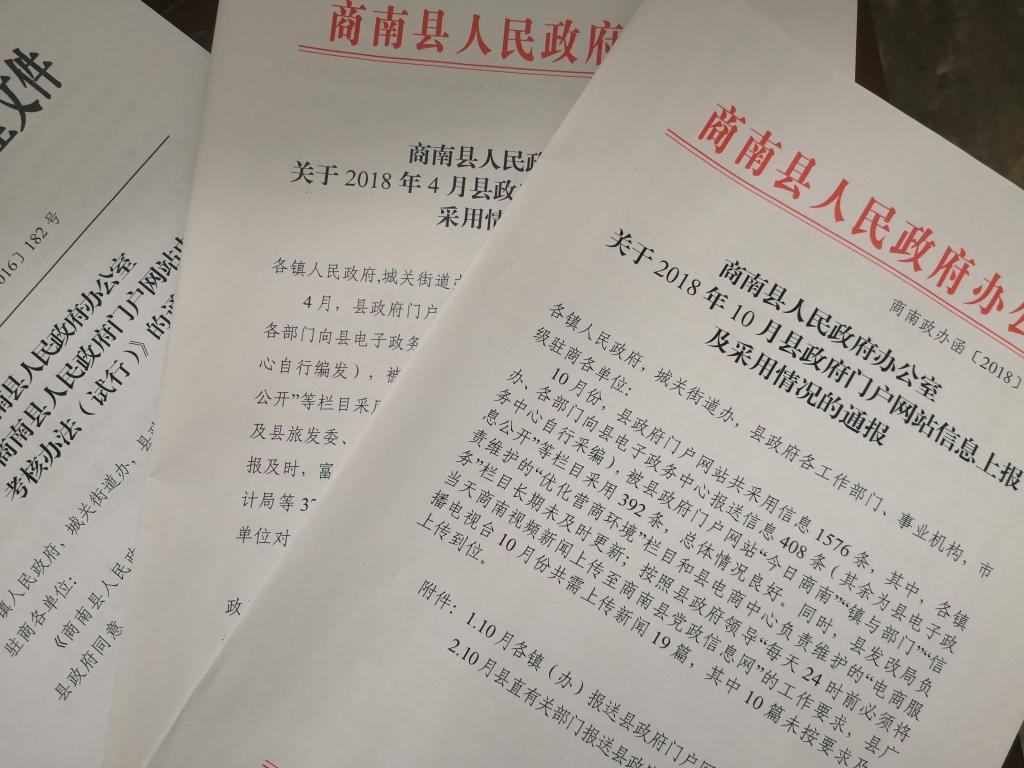 文件
016〕182号
南县人民政府办公室
商南县人民政府门户网站
考核办法（试行）》的通
镇人民政府，城关街道办，县政
驻商各单位：
《商南县人民政
县政府同意
商南县人民政府
商南县人民政
关于2018年4月县政
采用情
各镇人民政府,城关街道
4月，县政府门户
各部门向县电子政务
心自行编发），被
公开”等栏目采用
及县旅发委、
报及时，富
计局等3
单位对
政
商南县人民政府办公
商南政办函〔2018〕
商南县人民政府办公室
关于2018年10月县政府门户网站信息上报
及采用情况的通报
各镇人民政府，城关街道办，县政府各工作部门、事业机构，市
级驻商各单位：
10月份，县政府门户网站共采用信息1576条，其中，各镇
办、各部门向县电子政务中心报送信息408条（其余为县电子政
务中心自行采编），被县政府门户网站“今日商南”“镇与部门”“信
息公开”等栏目采用392条，总体情况良好。同时，县发改局负
责维护的“优化营商环境”栏目和县电商中心负责维护的“电商服
务”栏目长期未及时更新；按照县政府领导“每天24时前必须将
当天商南视频新闻上传至商南县党政信息网”的工作要求，县广
播电视台10月份共需上传新闻19篇，其中10篇未按要求及
上传到位。
附件：1.10月各镇（办）报送县政府门户网
2.10月县直有关部门报送县政